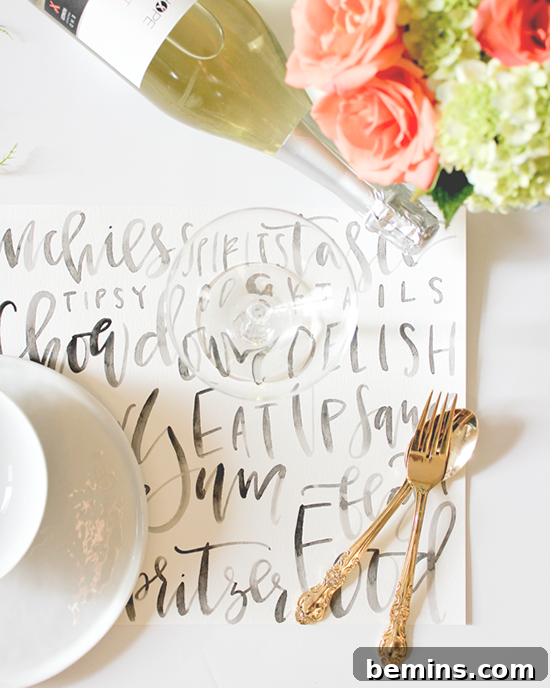 nchies SPIRITS taste
TIPSY COCKTAILS
Chowdown DELISH
EAT UP
Yum
pritzer Food
bemins.com